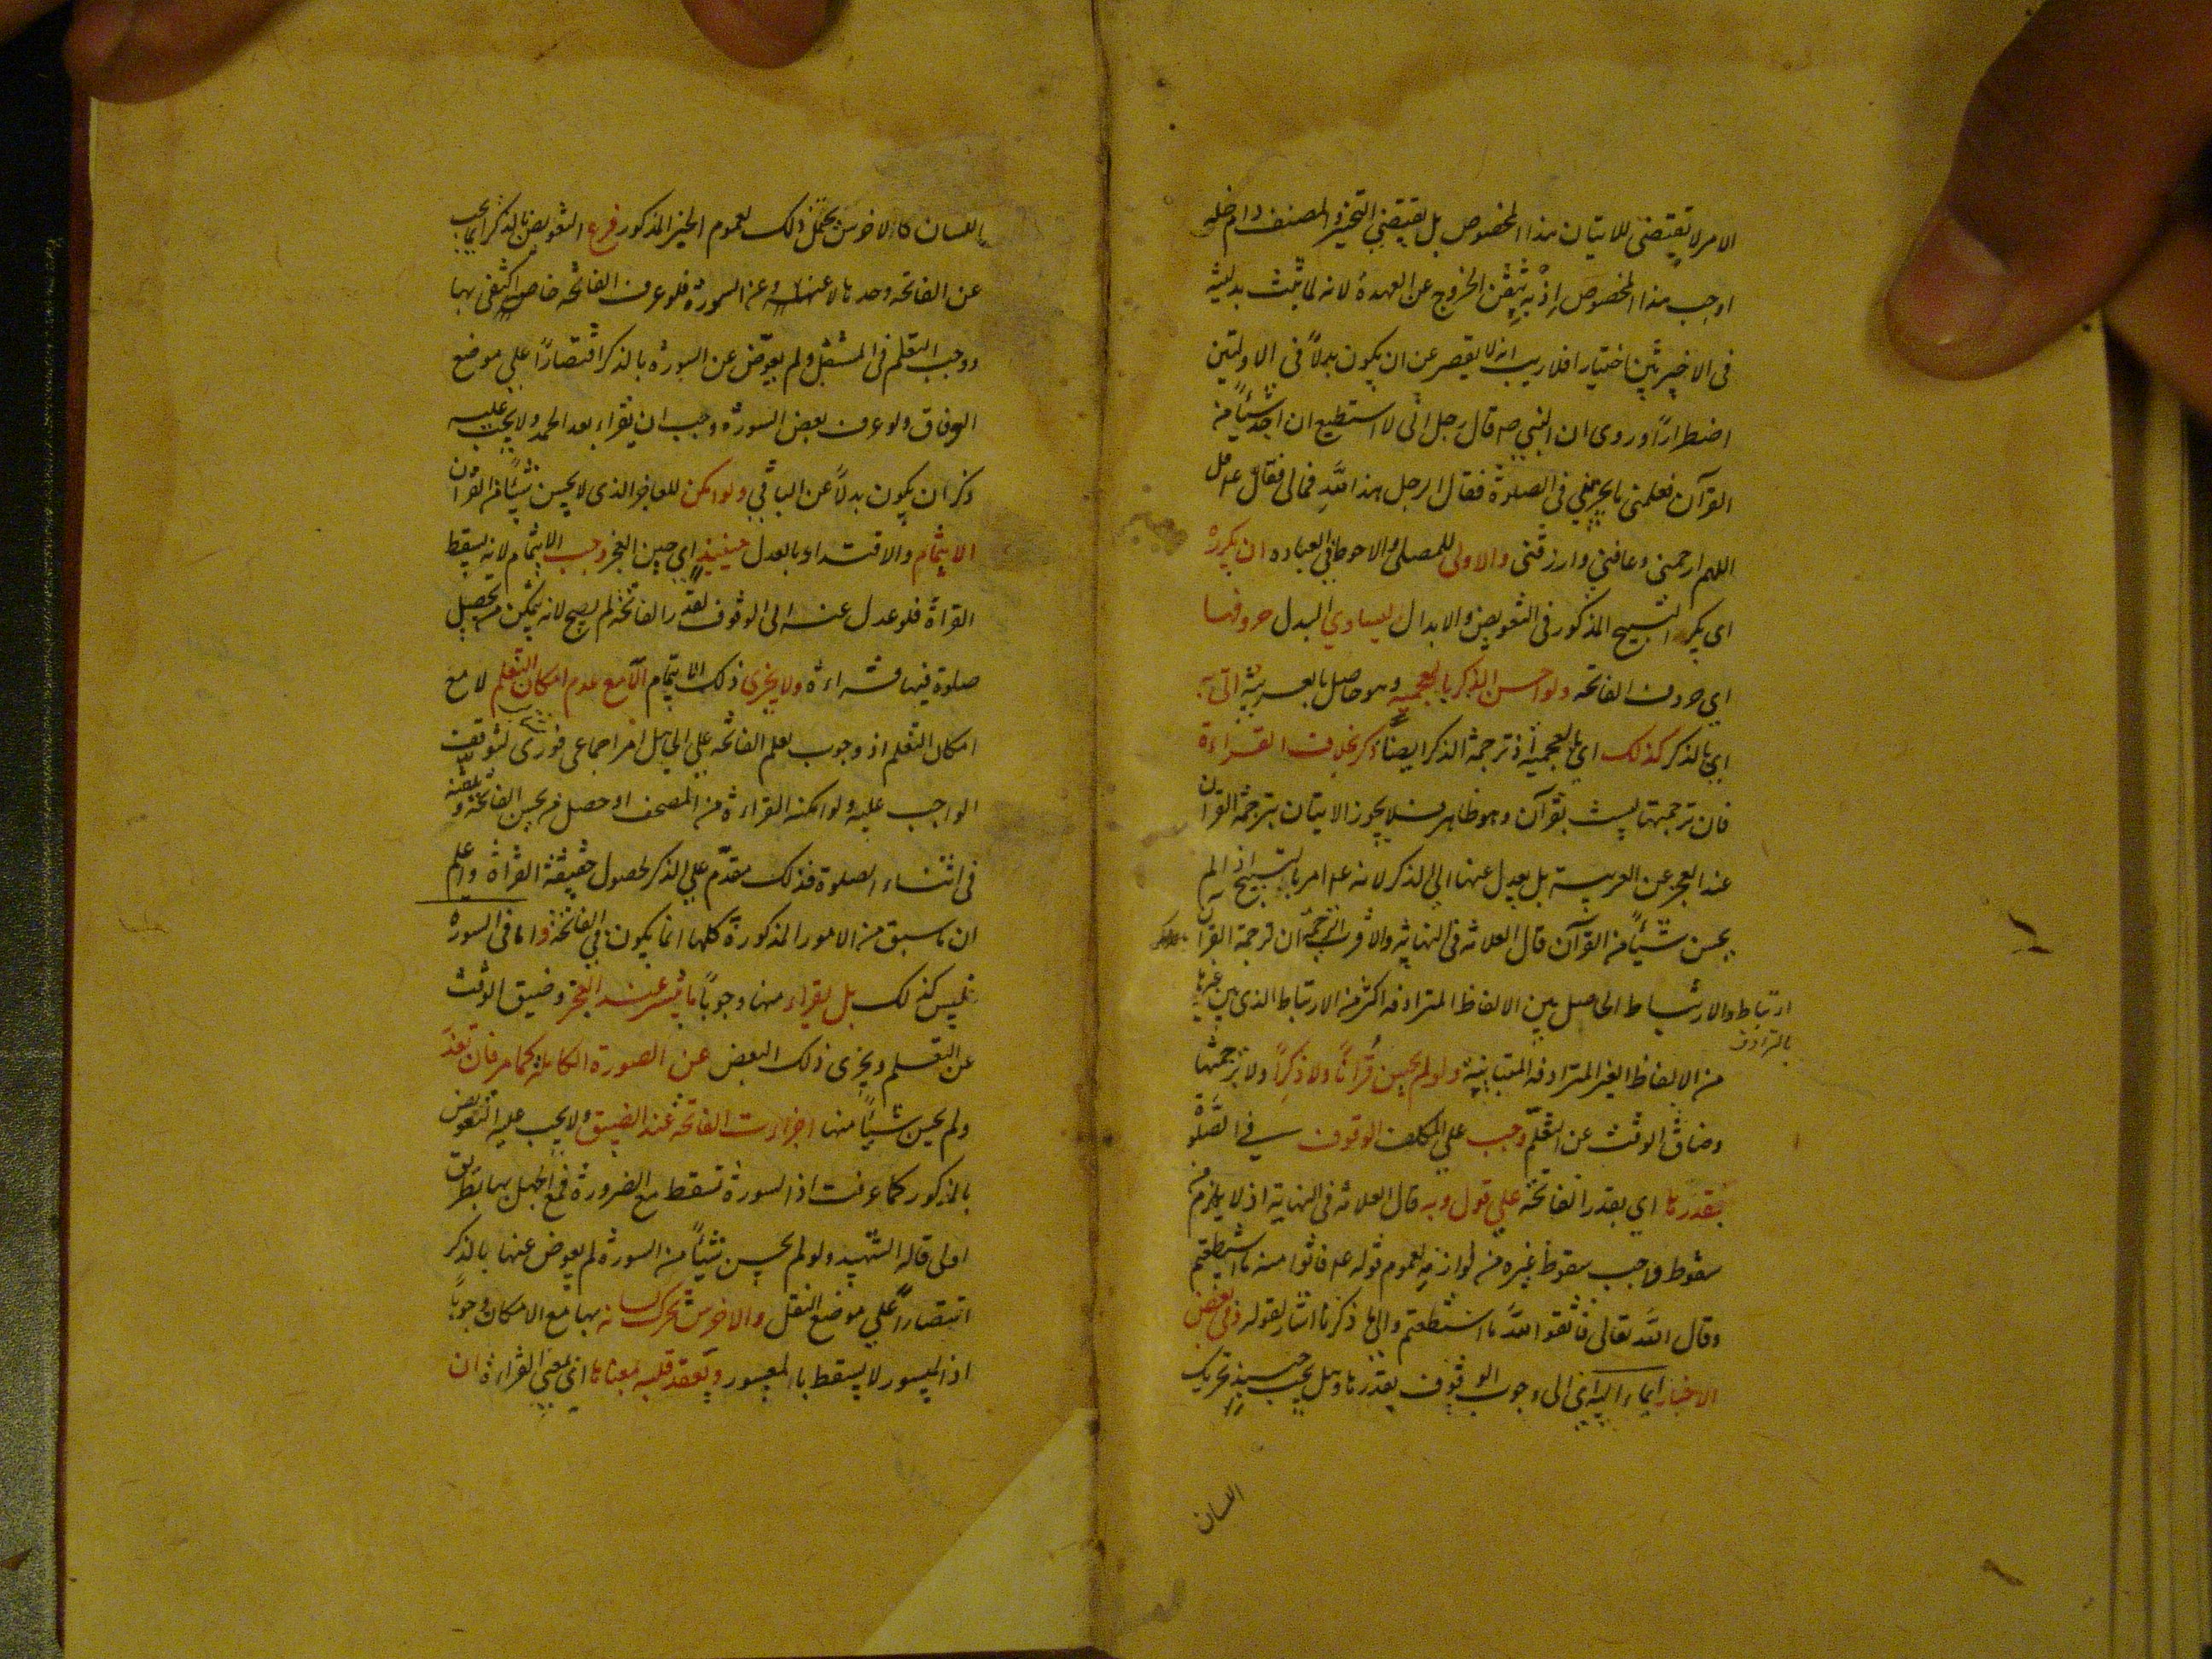 الامر لا يقتضى للاتيان بهذا الخصوص بل يقتضى التخيير والمصنف دام ظله
اوجب هذا الخصوص اذ به تيقن الخروج عن العهدة لانه لما ثبت بدليته
فى الاخيرتين اختيارا فلا ريب انه لا يقصر عن ان يكون بدلاً فى الاولتين
اضطراراً وروى ان النبى ص قال رجل انى لا استطيع ان اخذ شيئاً من
القرآن فعلمنى ما يجزينى فى الصلوة فقال الرجل هذا لله فمالى فقال ع قل
اللهم ارحمنى وعافنى وارزقنى والاولى للمصلى والاحوط فى العباده ان يكرره
اى يكرر التسبيح المذكور فى التعويض والابدال ليساوى البدل حروفها
اى حروف الفاتحه ولو احسن الذكر بالعجميه وهو حاصل بالعربية اتى به
اى بالذكر كذلك اى بالعجمية اذ ترجمة الذكر ايضاً ذكر بخلاف القراءة
فان ترجمتها ليست بقرآن وهو ظاهر فلا يجوز الاتيان بترجمة القرآن
عند العجز عن العربية بل يعدل عنها الى الذكر لانه ع امر بالتسبيح اذا لم
يحسن شيئاً من القرآن قال العلامه فى النهاية والاقرب الترجمة ان ترجمة القرآن
ارتباط والارتباط الحاصل بين الالفاظ المترادفه اكثر من الارتباط الذى بين غيرها
بالترادف
من الالفاظ الغير المترادفه المتباينة ولو لم يحسن قرآناً ولا ذكراً ولا ترجمتها
وضاق الوقت عن التعلّم وجب على المكلف الوقوف فى الصلوة
بقدرها اى بقدر الفاتحة على قول وبه قال العلامه فى النهاية اذ لا يلزم من
سقوط واجب سقوط غيره من لوازمه لعموم قوله ع فاتوا منه ما استطعتم
وقال الله تعالى فاتقوا الله ما استطعتم والى ما ذكرنا اشار بقوله وفى بعض
الاخبار ايماء اليه اى الى وجوب الوقوف بقدرها وهل يجب حينئذ تحريك
اللسان
اللسان كالاخرس يحتمل ذلك لعموم الخبر المذكور فرع التعويض بالذكر انما يجب
عن الفاتحه وحدها لا عنها وعن السورة فلو عرف الفاتحه خاصة اكتفى بها
ووجب التعلم فى المستقبل ولم يعوّض عن السورة بالذكر اقتصاراً على موضع
الوفاق ولو عرف بعض السورة وجب ان يقراءه بعد الحمد ولا يجب عليه
ذكر ان يكون بدلاً عن الباقى ولو امكن للعاجز الذى لا يحسن شيئاً من القرآن
الايتمام والاقتداء بالعدل حينئذ اى حين العجز وجب الايتمام لانه يسقط
القراة فلو عدل عنه الى الوقوف بقدر الفاتحة لم يصح لانه يمكن من تحصيل
صلوة فيها قراءة ولا يجزى ذلك الايتمام الا مع عدم امكان التعلم لا مع
امكان التعلم اذ وجوب تعلم الفاتحة على الجاهل امر اجماعى فورى لتوقف
الواجب عليه ولو امكنه القراءة من المصحف او حصل من يحسن الفاتحة ويلقنه
فى اثناء الصلوة فذلك مقدّم على الذكر لحصول حقيقة القراة واعلم
ان ما سبق من الامور المذكورة كلها انما يكون فى الفاتحة واما فى السورة
فليس كذلك بل يقراء منها وجوباً ما تيسر عند العجز وضيق الوقت
عن التعلم ويجزى ذلك البعض عن الصورة الكاملة كما مر فان تعذر
ولم يحسن شيئاً منها اجزاءت الفاتحة عند الضيق ولا يجب عليه التعويض
بالمذكور كما عرفت اذ السورة تسقط مع الضرورة فمع الجهل بها بطريق
اولى قاله الشهيد ولو لم يحسن شيئاً من السورة لم يعوض عنها بالذكر
اقتصاراً على موضع النقل والاخرس يحرك لسانه بها مع الامكان وجوباً
اذ الميسور لا يسقط بالمعسور ويعقد قلبه بمعناها اى بمعنى القراءة ان